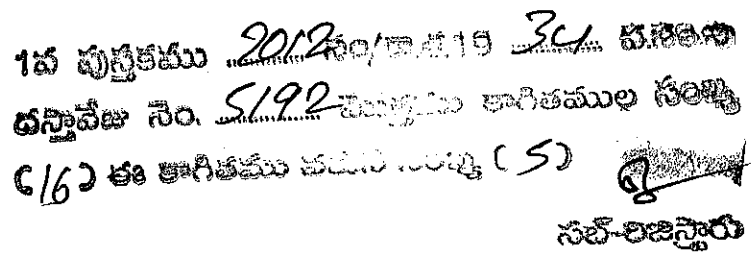 1వ పుస్తకము 2012సం/శా.శ.19 34 వ.సం.పు
దస్తావేజు నెం. 5192 మొత్తము కాగితముల సంఖ్య
(16) ఈ కాగితము వరుస సంఖ్య (5)
సబ్-రిజిస్ట్రారు